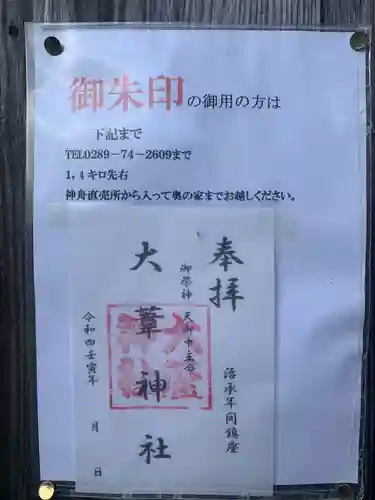 御朱印の御用の方は
下記まで
TEL0289－74－2609まで
1,4キロ先右
神舟直売所から入って奥の家までお越しください。
奉拝
治承年間鎮座
御祭神
天御中主命
大葦神社
令和四壬寅年　月　日